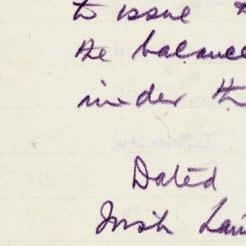 to issue
the balance
under th
Dated
Irish Lan